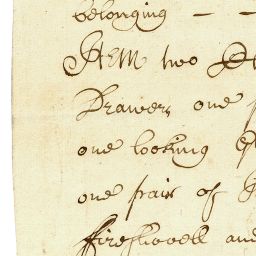 belonging — —
Item two
Drawers, one
one looking
one pair of
fireshovell and